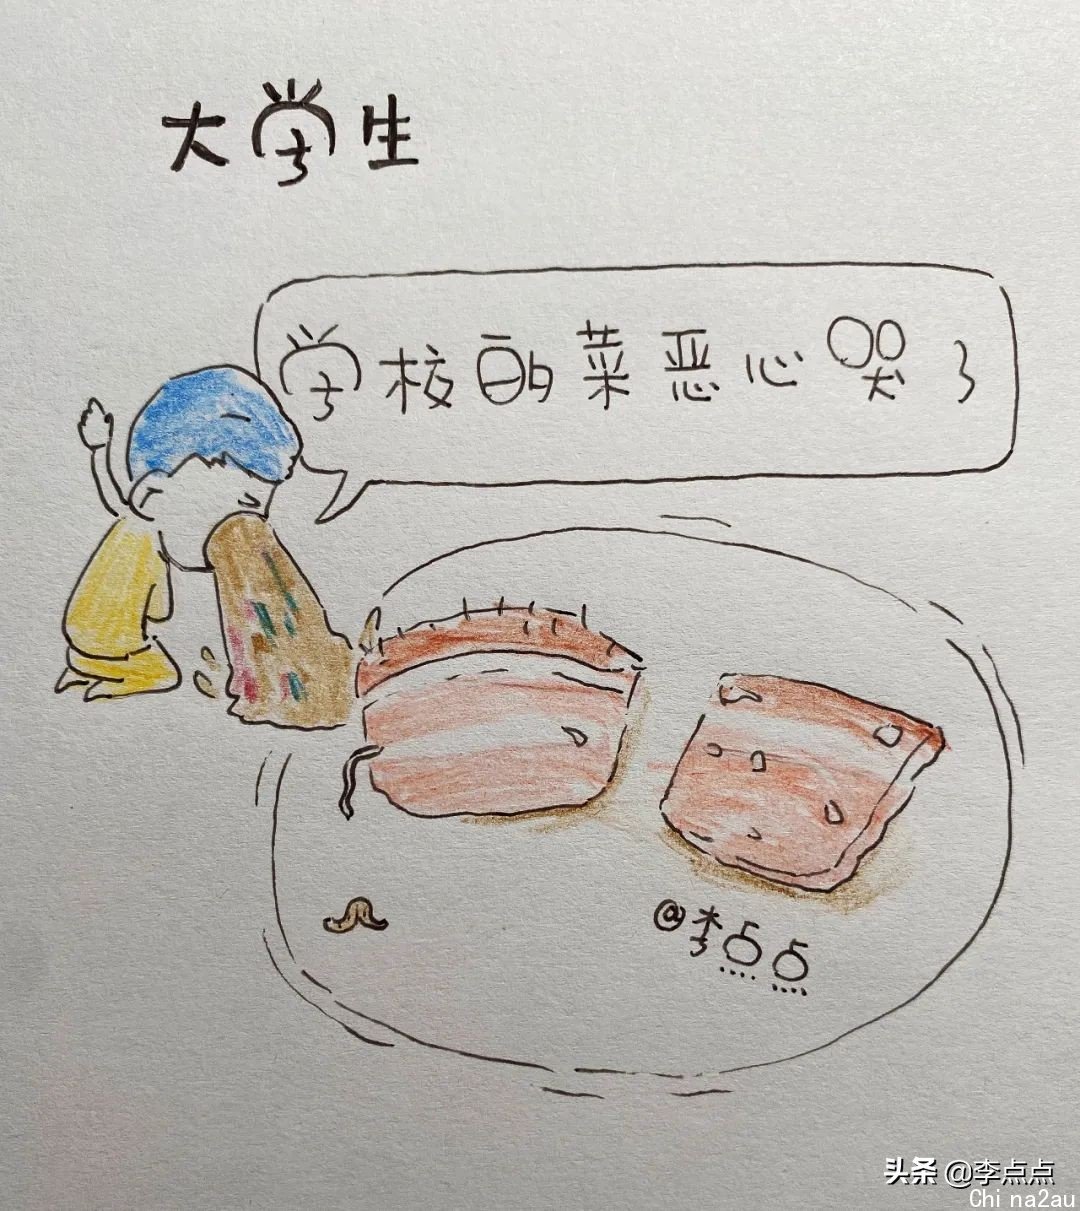 大学生
学校的菜恶心哭了
@李点点
头条 @李点点
Chi na2au